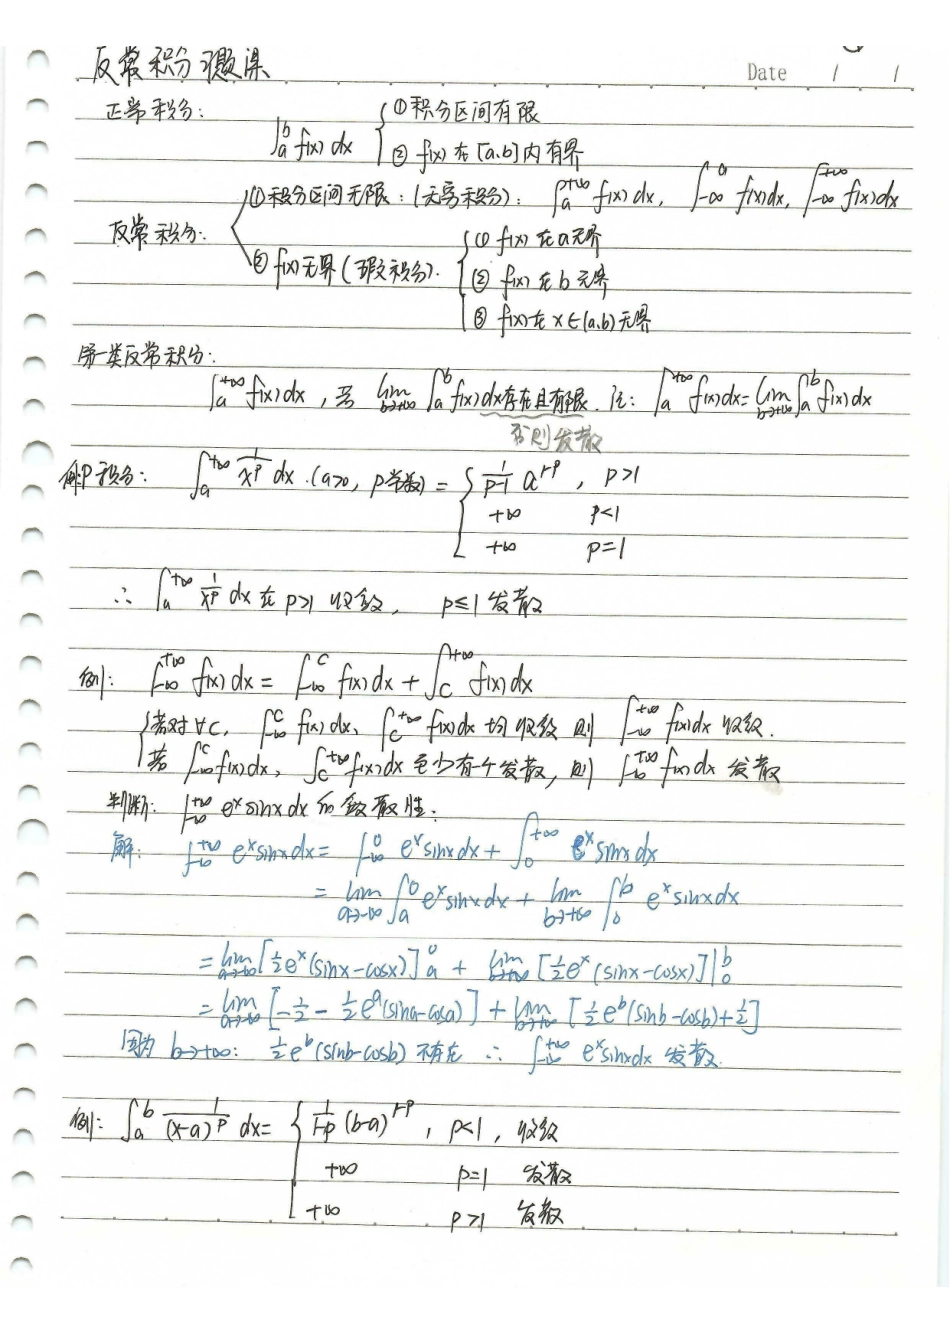 反常积分
Date / /
正常积分: ∫_a^b f(x) dx { ①积分区间有限
② f(x) 在 [a,b] 内有界
反常积分: ①积分区间无限: (无穷积分): ∫_a^{+∞} f(x) dx, ∫_{-∞}^a f(x)dx, ∫_{-∞}^{+∞} f(x)dx
② f(x)无界 (瑕积分). { ① f(x) 在 a 无界
② f(x) 在 b 无界
③ f(x)在 x∈(a,b) 无界
第一类反常积分:
∫_a^{+∞} f(x) dx , 若 lim_{b→+∞} ∫_a^b f(x) dx 存在且有限. 记: ∫_a^{+∞} f(x)dx = lim_{b→+∞} ∫_a^b f(x)dx
否则发散
例P积分: ∫_a^{+∞} 1/x^p dx. (a>0, p常数) = { 1/(p-1) a^{1-p} , p>1
+∞ p<1
+∞ p=1
∴ ∫_a^{+∞} 1/x^p dx 在 p>1 收敛, p≤1 发散
例: ∫_{-∞}^{+∞} f(x) dx = ∫_{-∞}^c f(x) dx + ∫_c^{+∞} f(x) dx
{ 若对 ∀c, ∫_{-∞}^c f(x) dx, ∫_c^{+∞} f(x)dx 均收敛 则 ∫_{-∞}^{+∞} f(x)dx 收敛.
若 ∫_{-∞}^c f(x)dx, ∫_c^{+∞} f(x)dx 至少有个发散, 则 ∫_{-∞}^{+∞} f(x)dx 发散
判断: ∫_{-∞}^{+∞} e^x sinx dx 的敛散性:
解: ∫_{-∞}^{+∞} e^x sinx dx = ∫_{-∞}^0 e^x sinx dx + ∫_0^{+∞} e^x sinx dx
= lim_{a→-∞} ∫_a^0 e^x sinx dx + lim_{b→+∞} ∫_0^b e^x sinx dx
= lim_{a→-∞} [½e^x (sinx-cosx)]_a^0 + lim_{b→+∞} [½e^x (sinx-cosx)]|_0^b
= lim_{a→-∞} [-½ - ½e^a(sina-cosa)] + lim_{b→+∞} [½e^b(sinb-cosb)+½]
因为 b→+∞: ½e^b (sinb-cosb) 不存在 ∴ ∫_{-∞}^{+∞} e^x sinx dx 发散.
例: ∫_a^b 1/(x-a)^p dx = { 1/(1-p) (b-a)^{1-p} , p<1 , 收敛
+∞ p=1 发散
+∞ p>1 发散